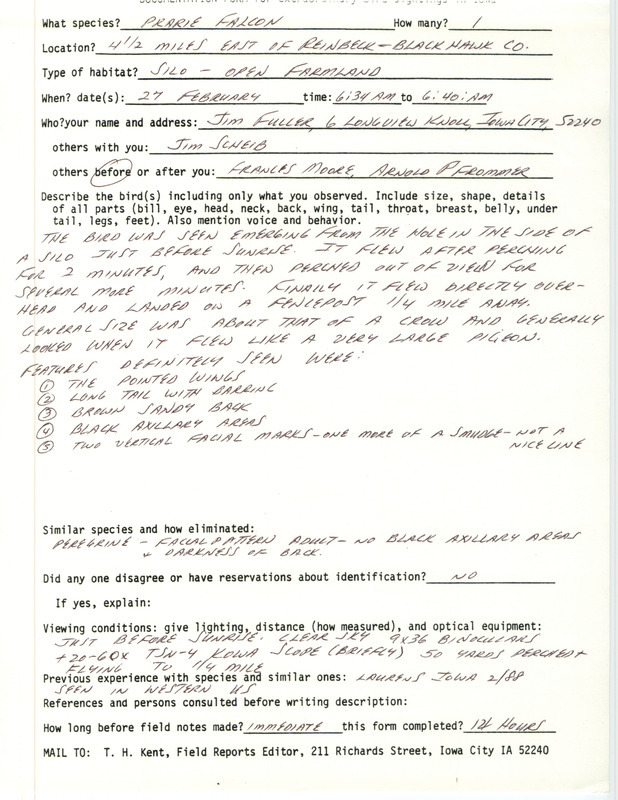 DOCUMENTATION FORM for extraordinary bird sightings in Iowa
What species? PRARIE FALCON How many? 1
Location? 4 1/2 MILES EAST OF REINBECK - BLACKHAWK CO.
Type of habitat? SILO - OPEN FARMLAND
When? date(s): 27 FEBRUARY time: 6:34 AM to 6:40 AM
Who?your name and address: JIM FULLER, 6 LONGVIEW KNOLL, IOWA CITY, 52240
others with you: JIM SCHEIB
others before or after you: FRANCES MOORE, ARNOLD P FROMMER
Describe the bird(s) including only what you observed. Include size, shape, details
of all parts (bill, eye, head, neck, back, wing, tail, throat, breast, belly, under
tail, legs, feet). Also mention voice and behavior.
THE BIRD WAS SEEN EMERGING FROM THE HOLE IN THE SIDE OF
A SILO JUST BEFORE SUNRISE. IT FLEW AFTER PERCHING
FOR 2 MINUTES, AND THEN PERCHED OUT OF VIEW FOR
SEVERAL MORE MINUTES. FINALLY IT FLEW DIRECTLY OVER-
HEAD AND LANDED ON A FENCEPOST 1/4 MILE AWAY.
GENERAL SIZE WAS ABOUT THAT OF A CROW AND GENERALLY
LOOKED WHEN IT FLEW LIKE A VERY LARGE PIGEON.
FEATURES DEFINITELY SEEN WERE:
① THE POINTED WINGS
② LONG TAIL WITH BARRING
③ BROWN SANDY BACK
④ BLACK AXILLARY AREAS
⑤ TWO VERTICAL FACIAL MARKS - ONE MORE OF A SMUDGE - NOT A
NICE LINE
Similar species and how eliminated:
PEREGRINE - FACIAL PATTERN ADULT - NO BLACK AXILLARY AREAS
+ DARKNESS OF BACK.
Did any one disagree or have reservations about identification? NO
If yes, explain:
Viewing conditions: give lighting, distance (how measured), and optical equipment:
JUST BEFORE SUNRISE. CLEAR SKY 9X36 BINOCULARS
+ 20-60X TSN-4 KOWA SCOPE (BRIEFLY) 50 YARDS PERCHED +
FLYING TO 1/4 MILE
Previous experience with species and similar ones: LAURENS IOWA 2/88
SEEN IN WESTERN US
References and persons consulted before writing description:
How long before field notes made? IMMEDIATE this form completed? 12 HOURS
MAIL TO: T. H. Kent, Field Reports Editor, 211 Richards Street, Iowa City IA 52240